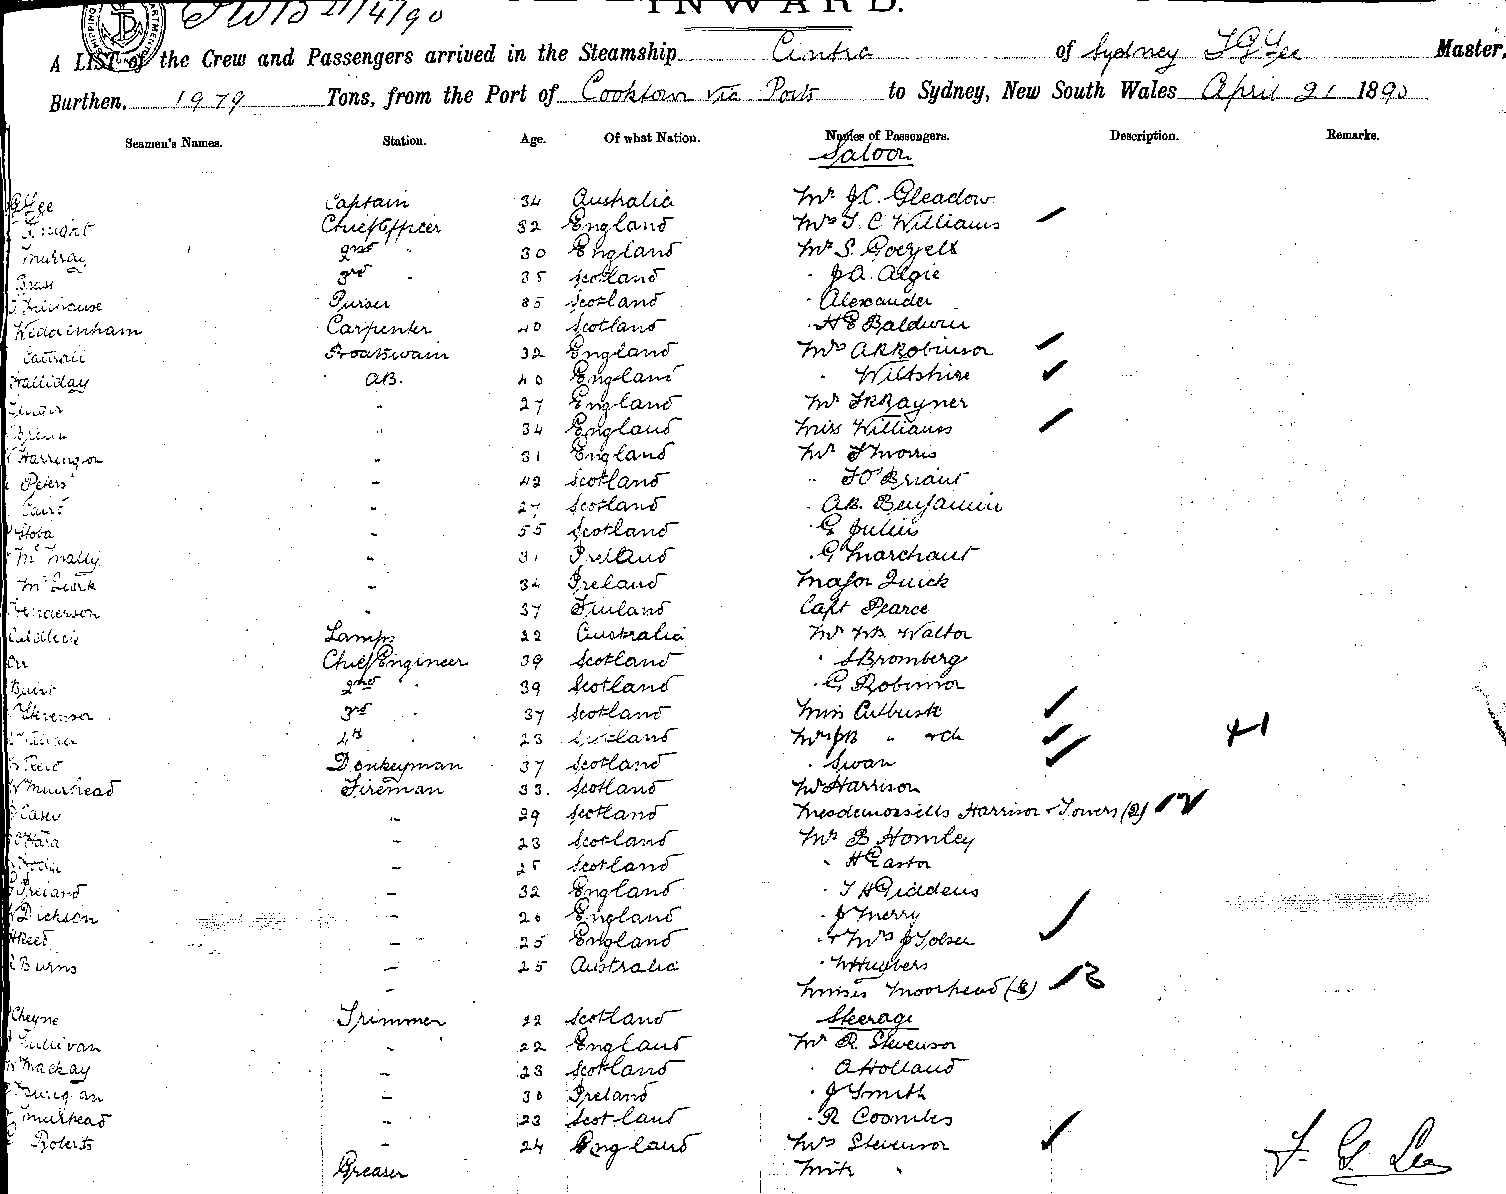 21/4/90
INWARD.
A LIST of the Crew and Passengers arrived in the Steamship Cintra of Sydney Master,
Burthen, 1979 Tons, from the Port of Cooktown via Ports to Sydney, New South Wales April 21 1890
Seamen's Names. Station. Age. Of what Nation. Names of Passengers. Description. Remarks.
Saloon
Captain 34 Australia Mr J.C. Gleadow
Knight Chief Officer 32 England Mrs T. C Williams
Murray 2nd " 30 England Mr S.
Brass 3rd " 35 Scotland " J.A. Algie
Purser 35 Scotland " Alexander
Widdenham Carpenter 40 Scotland " H E Baldwin
Boatswain 32 England Mrs A R Robinson
Halliday A.B. 40 England " Wiltshire
" 27 England Mr Rayner
" 34 England Miss Williams
Harrington " 31 England Mr Morris
Peters " 42 Scotland " O'Briant
Caird " 27 Scotland " A.B. Benjamin
" 55 Scotland " G Julius
McNally " 31 Ireland " G Marchant
McGurk " 34 Ireland Major Quick
Henderson " 37 Finland Capt Pearce
Lamps 22 Australia Mr Walton
Orr Chief Engineer 39 Scotland " S Bromberg
2nd " 39 Scotland " G Robinson
Stevenson 3rd " 37 Scotland Miss Cutbush
4th 23 Scotland Mrs J B " + ch 41
Reid Donkeyman 37 Scotland " Swan
W Muirhead Fireman 33. Scotland Mr Harrison
Casey " 29 Scotland Mesdemoisells Harrison & Towers (2)
O'Hara " 23 Scotland Mr B Homley
" 25 Scotland " H Easton
Ireland " 32 England " T H Giddens
W Dickson " 20 England " J Merry
H Reed " 25 England " + Mrs J Tolsen
Burns " 25 Australia " W Hughers
" Misses Moorhead (2)
Steerage
Cheyne Trimmer 22 Scotland
Sullivan " 22 England Mr R. Stevenson
Mackay " 23 Scotland " A Holland
" 30 Ireland " J Smith
Muirhead " 23 Scotland " R Coombes
Roberts " 24 England Mrs Stevenson
Greaser Miss "
F. G. Lee